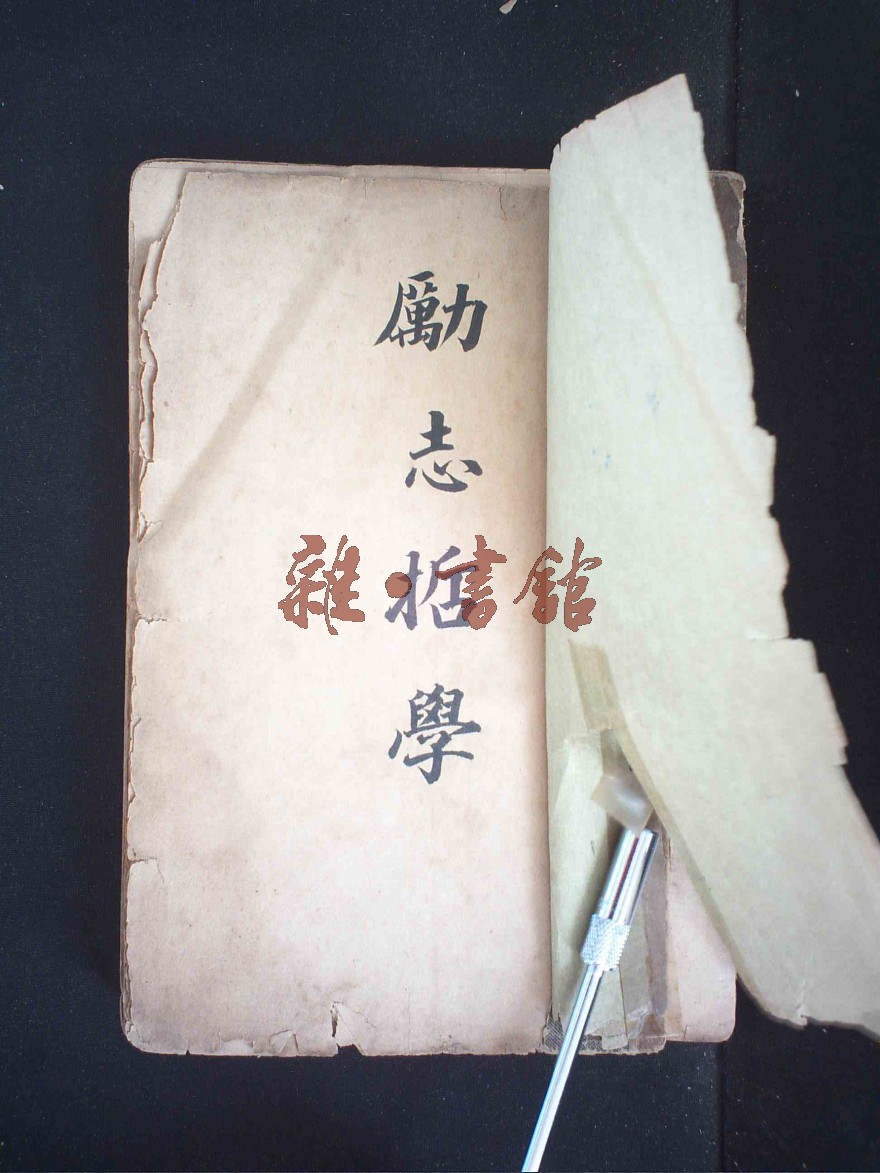 勵志哲學
雜·書館